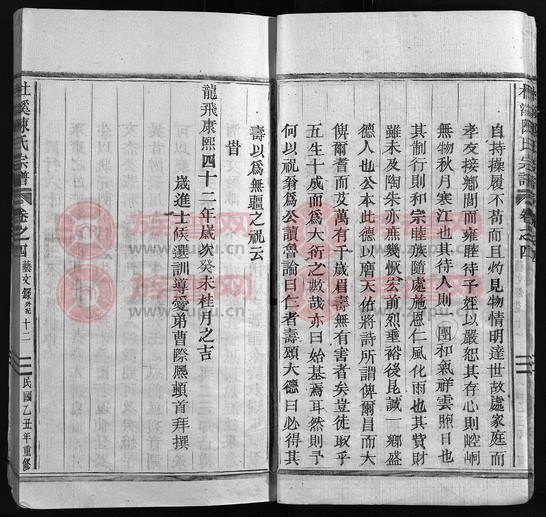 自持操履不苟而且灼見物情明達世故處家庭而
孝友接鄉閭而雍睦待子姪以嚴恕其存心則崆峒
無物秋月寒江也其待人則一團和氣祥雲煦日也
其制行則和宗睦族隨處施恩仁風化雨也其貲財
雖未及陶朱亦庶幾恢宏前烈垂裕後昆誠一鄉盛
德人也公本此德以膺天佑將詩所謂俾爾昌而大
俾爾耆而艾萬有千歲眉壽無有害者矣豈徒取乎
五生十成而爲大衍之數哉亦曰始基焉耳然則予
何以祝翁爲公讀魯論曰仁者壽頌大德曰必得其
壽以爲無疆之祝云
昔
龍飛康熙四十二年歲次癸未桂月之吉
歲進士候選訓導愛弟曹際 頓首拜撰
杜溪陳氏宗譜
卷之四
藝文錄
十二
民國乙丑年重修
族譜网